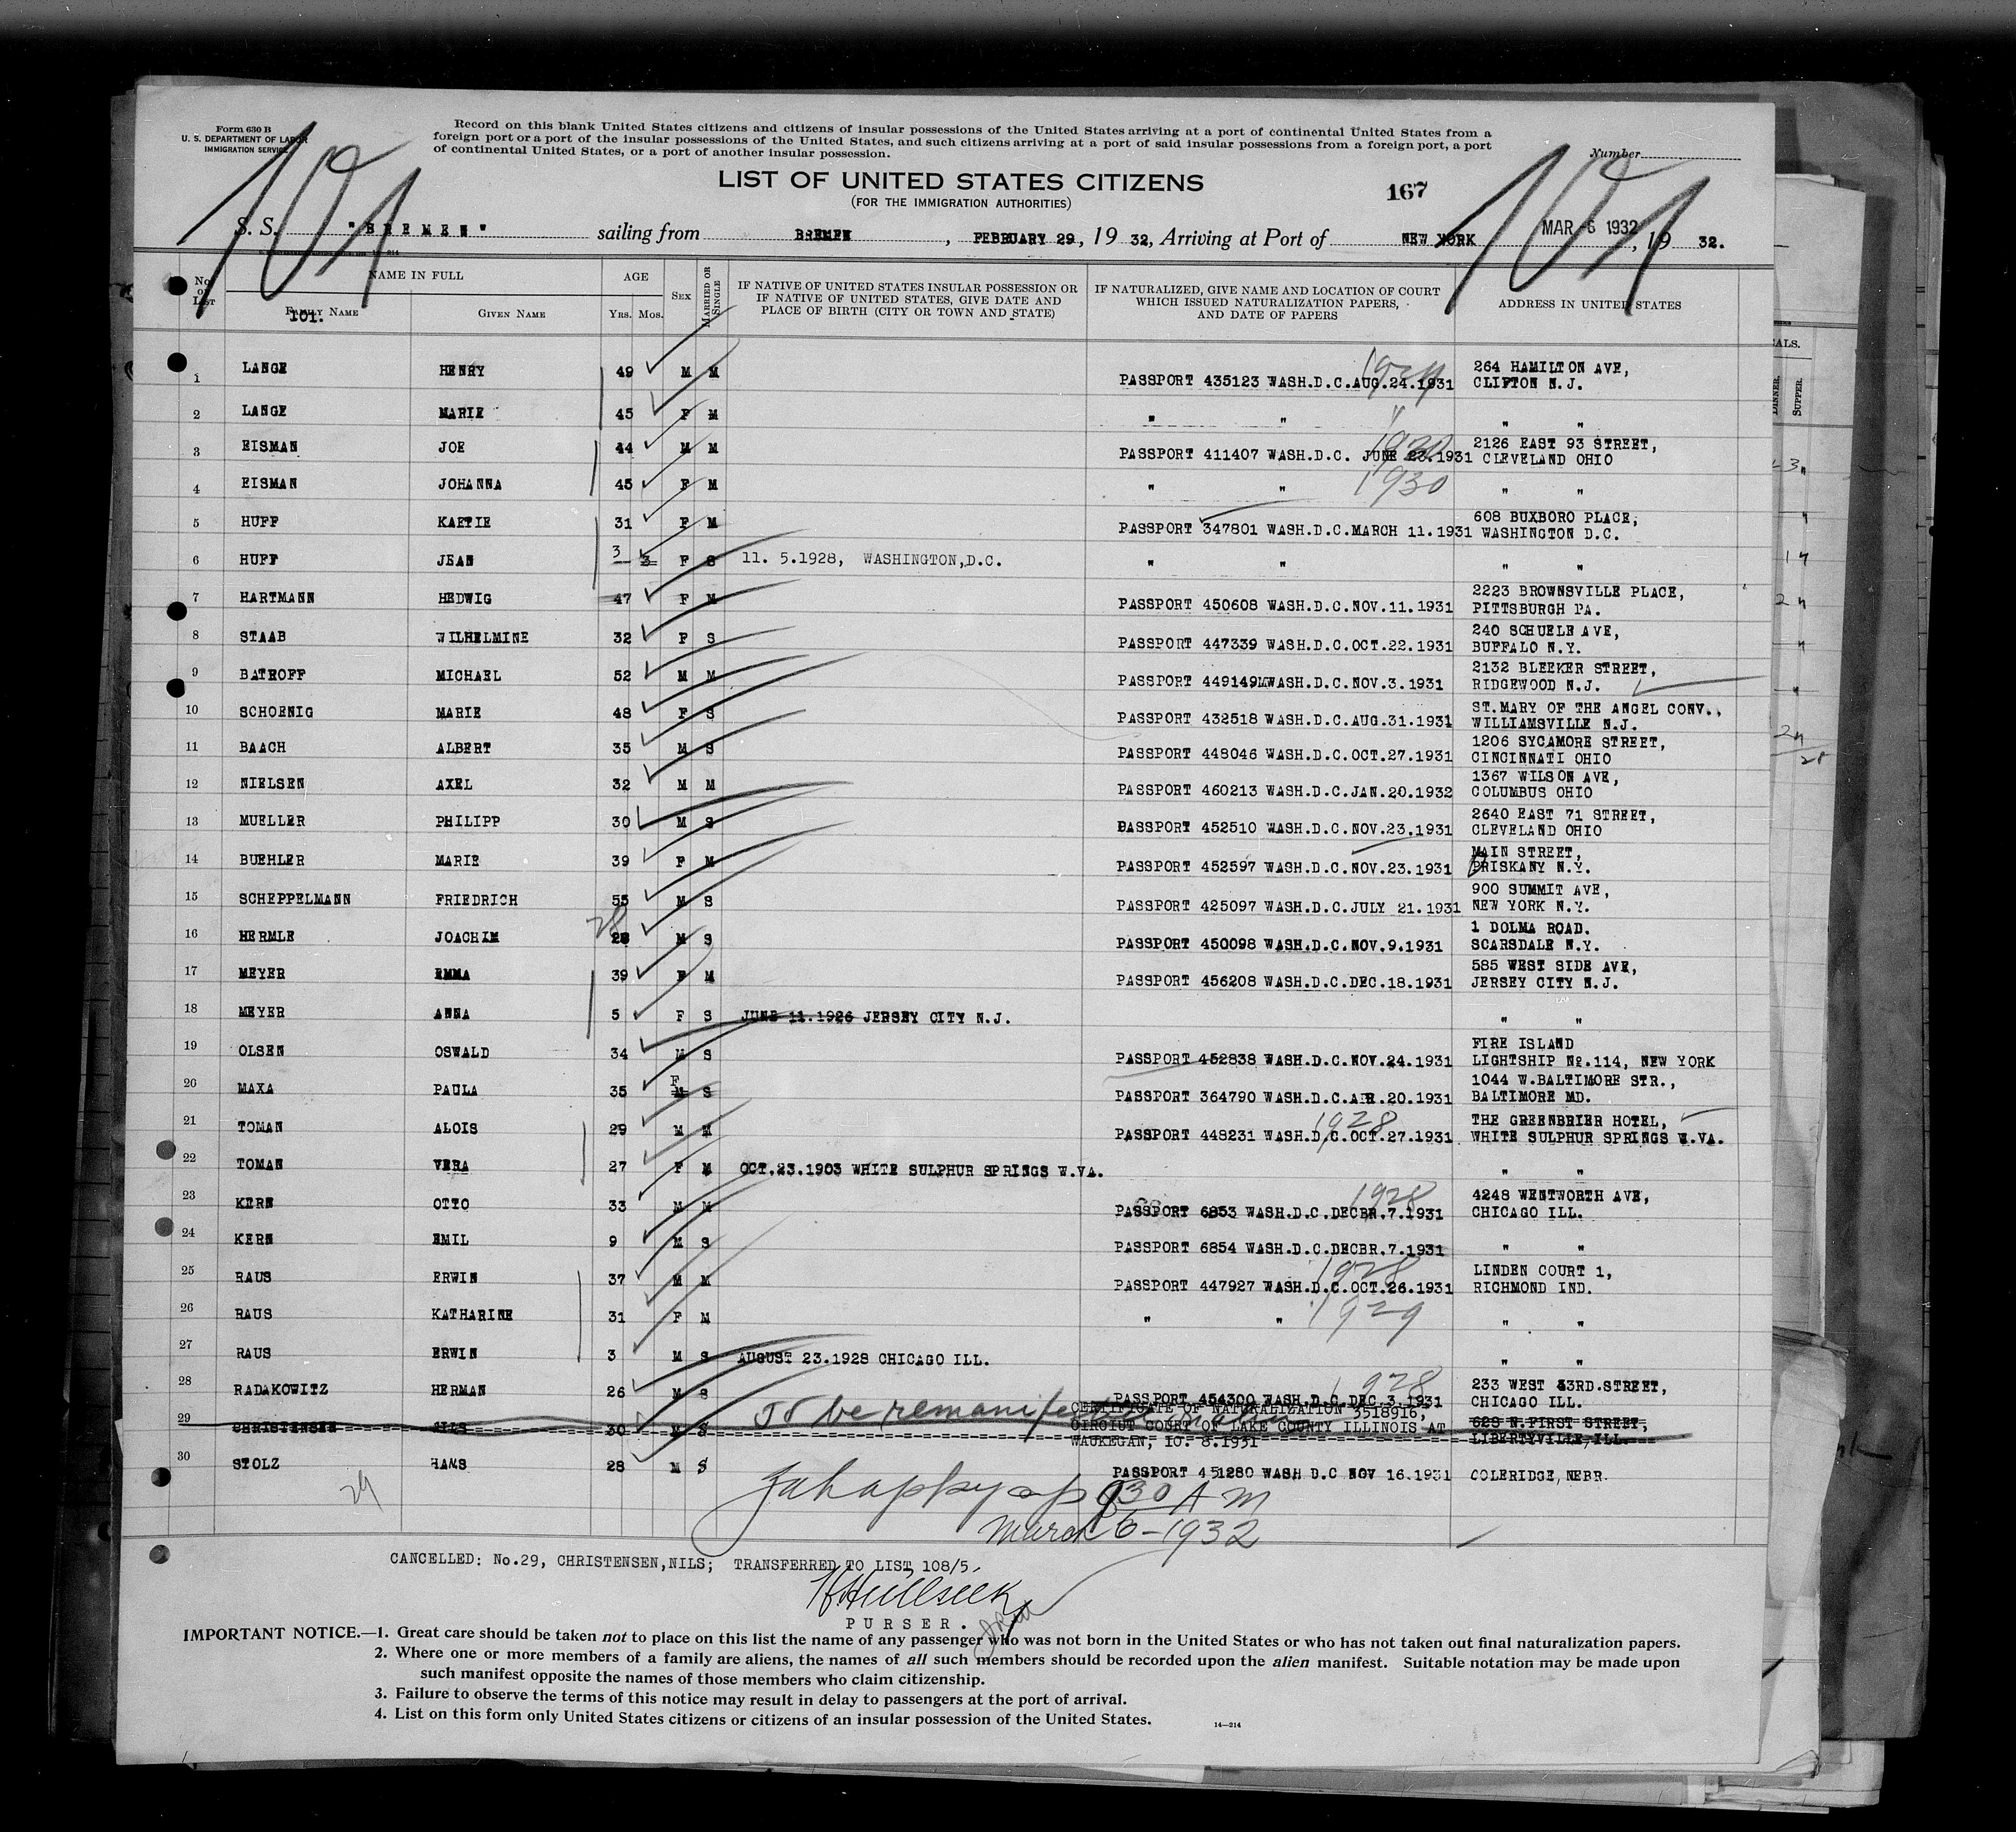 Form 630 B
U. S. DEPARTMENT OF LABOR
IMMIGRATION SERVICE
Record on this blank United States citizens and citizens of insular possessions of the United States arriving at a port of continental United States from a
foreign port or a port of the insular possessions of the United States, and such citizens arriving at a port of said insular possessions from a foreign port, a port
of continental United States, or a port of another insular possession.
Number
101 101
LIST OF UNITED STATES CITIZENS
(FOR THE IMMIGRATION AUTHORITIES)
167
S. S. "BREMEN" sailing from BREMEN, FEBRUARY 29, 19 32, Arriving at Port of NEW YORK MAR -6 1932, 19 32.
No. on List NAME IN FULL AGE SEX MARRIED OR SINGLE IF NATIVE OF UNITED STATES INSULAR POSSESSION OR IF NATIVE OF UNITED STATES, GIVE DATE AND PLACE OF BIRTH (CITY OR TOWN AND STATE) IF NATURALIZED, GIVE NAME AND LOCATION OF COURT WHICH ISSUED NATURALIZATION PAPERS, AND DATE OF PAPERS ADDRESS IN UNITED STATES
FAMILY NAME GIVEN NAME YRS. MOS.
101.
1 LANGE HENRY 49 M M PASSPORT 435123 WASH.D.C.AUG.24.1931 264 HAMILTON AVE, CLIFTON N.J.
2 LANGE MARIE 45 F M " " " "
3 EISMAN JOE 44 M M PASSPORT 411407 WASH.D.C. JUNE 1931 2126 EAST 93 STREET, CLEVELAND OHIO
4 EISMAN JOHANNA 45 F M " " 1930 " "
5 HUFF KAETIE 31 F M PASSPORT 347801 WASH.D.C.MARCH 11.1931 608 BUXBORO PLACE, WASHINGTON D.C.
6 HUFF JEAN 3 3 F S 11. 5.1928, WASHINGTON,D.C. " " " "
7 HARTMANN HEDWIG 47 F M PASSPORT 450608 WASH.D.C.NOV.11.1931 2223 BROWNSVILLE PLACE, PITTSBURGH PA.
8 STAAB WILHELMINE 32 F S PASSPORT 447339 WASH.D.C.OCT.22.1931 240 SCHUELE AVE, BUFFALO N.Y.
9 BATROFF MICHAEL 52 M M PASSPORT 449149 WASH.D.C.NOV.3.1931 2132 BLEEKER STREET, RIDGEWOOD N.J.
10 SCHOENIG MARIE 48 F S PASSPORT 432518 WASH.D.C.AUG.31.1931 ST.MARY OF THE ANGEL CONV., WILLIAMSVILLE N.J.
11 BAACH ALBERT 35 M S PASSPORT 448046 WASH.D.C.OCT.27.1931 1206 SYCAMORE STREET, CINCINNATI OHIO
12 NIELSEN AXEL 32 M M PASSPORT 460213 WASH.D.C.JAN.20.1932 1367 WILSON AVE, COLUMBUS OHIO
13 MUELLER PHILIPP 30 M S PASSPORT 452510 WASH.D.C.NOV.23.1931 2640 EAST 71 STREET, CLEVELAND OHIO
14 BUEHLER MARIE 39 F M PASSPORT 452597 WASH.D.C.NOV.23.1931 MAIN STREET, ORISKANY N.Y.
15 SCHEPPELMANN FRIEDRICH 55 M S PASSPORT 425097 WASH.D.C.JULY 21.1931 900 SUMMIT AVE, NEW YORK N.Y.
16 HERMLE JOACHIM 28 28 M S PASSPORT 450098 WASH.D.C.NOV.9.1931 1 DOLMA ROAD. SCARSDALE N.Y.
17 MEYER EMMA 39 F M PASSPORT 456208 WASH.D.C.DEC.18.1931 585 WEST SIDE AVE, JERSEY CITY N.J.
18 MEYER ANNA 5 F S JUNE 11.1926 JERSEY CITY N.J. " "
19 OLSEN OSWALD 34 M S PASSPORT 452838 WASH.D.C.NOV.24.1931 FIRE ISLAND LIGHTSHIP No.114, NEW YORK
20 MAXA PAULA 35 F M S PASSPORT 364790 WASH.D.C.APR.20.1931 1044 W.BALTIMORE STR., BALTIMORE MD.
21 TOMAN ALOIS 29 M M PASSPORT 448231 WASH.D.C.OCT.27.1931 1928 THE GREENBRIER HOTEL, WHITE SULPHUR SPRINGS W.VA.
22 TOMAN VERA 27 F M OCT.23.1903 WHITE SULPHUR SPRINGS W.VA. " "
23 KERN OTTO 33 M M PASSPORT 6853 WASH.D.C.DECBR.7.1931 1928 4248 WENTWORTH AVE, CHICAGO ILL.
24 KERN EMIL 9 M S PASSPORT 6854 WASH.D.C.DECBR.7.1931 " "
25 RAUS ERWIN 37 M M PASSPORT 447927 WASH.D.C.OCT.26.1931 1928 LINDEN COURT 1, RICHMOND IND.
26 RAUS KATHARINE 31 F M " " 1929 " "
27 RAUS ERWIN 3 M S AUGUST 23.1928 CHICAGO ILL. " "
28 RADAKOWITZ HERMAN 26 M S PASSPORT 454300 WASH.D.C.DEC.3.1931 1928 233 WEST 53RD.STREET, CHICAGO ILL.
29 CHRISTENSEN NILS 30 M S To be remanifested CERTIFICATE OF NATURALIZATION 3518916, CIRCIUT COURT OF LAKE COUNTY ILLINOIS AT WAUKEGAN, 10. 8.1931 628 N.FIRST STREET, LIBERTYVILLE, ILL.
30 STOLZ HANS 28 M S PASSPORT 451280 WASH D.C NOV 16.1931 COLERIDGE, NEBR.
29
830 AM
March 6-1932
CANCELLED: No.29, CHRISTENSEN,NILS; TRANSFERRED TO LIST 108/5.
PURSER.
IMPORTANT NOTICE.—1. Great care should be taken not to place on this list the name of any passenger who was not born in the United States or who has not taken out final naturalization papers.
2. Where one or more members of a family are aliens, the names of all such members should be recorded upon the alien manifest. Suitable notation may be made upon
such manifest opposite the names of those members who claim citizenship.
3. Failure to observe the terms of this notice may result in delay to passengers at the port of arrival.
4. List on this form only United States citizens or citizens of an insular possession of the United States.
14—214
DINNER.
SUPPER.